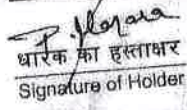 धारक का हस्ताक्षर
Signature of Holder